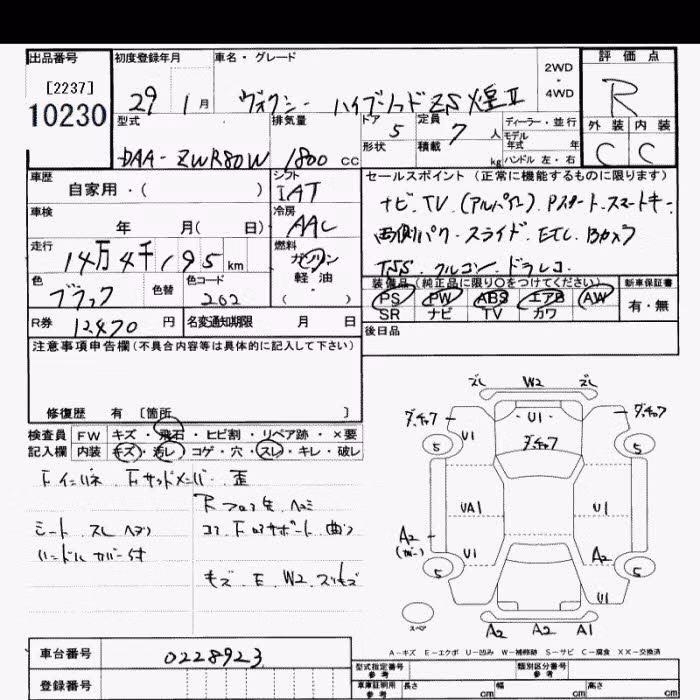 出品番号 初度登録年月 車名・グレード 評価点
[2237] 2WD
10230 29年 1月 ヴォクシー ハイブリッド ZS 煌Ⅱ ・ R
4WD
型式 排気量 ドア 5 定員 7人 ディーラー・並行 外装 内装
DAA-ZWR80W 1800cc 形状 積載 kg モデル年式 年 C C
ハンドル 左・右
車歴 シフト セールスポイント (正常に機能するものに限ります)
自家用・( ) IAT ナビ.TV.(アルパイン).Pスタート.スマートキー
車検 冷房
年 月( 日) AAC 両側パワ・スライド.ETC.Bカメラ
走行 14万4千195km 燃料 TSS.クルコン.ドラレコ.
ガソリン
色 色替 色コード 軽油 装備品 (純正品に限り○をつけてください) 新車保証書
ブラック 202 ( ) PS PW ABS エアB AW 有・無
SR ナビ TV カワ
R券 12470円 名変通知期限 月 日 後日品
注意事項申告欄(不具合内容等は具体的に記入して下さい)
修復歴 有 〔箇所 〕
検査員 FW キズ・飛石・ヒビ割・リペア跡・×要
記入欄 内装 キズ・汚レ・コゲ・穴・スレ・キレ・破レ
シート スレ
ハンドル カバー付
キズ E W2 スリキズ
スレ W2 スレ
U1
U1
5 5
UA1 U1
A2 U1 A2
5 5
U1
スペア A2 A2 A1
A-キズ E-エクボ U-凹み W-補修跡 S-サビ C-腐食 XX-交換済
車台番号 0228923
型式指定番号 参考 類別区分番号 参考
登録番号 車庫証明用 参考 長さ cm 幅 cm 高さ cm